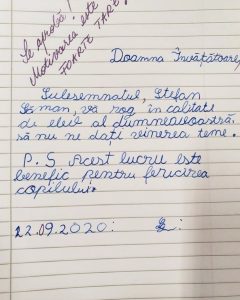 Se aprobă!
Motivarea este
FOARTE TARE!
Doamna Învățătoare,
Subsemnatul, Ștefan
vă rog în calitate
de elev al dumneavoastră
să nu ne dați vinerea teme.
P.S Acest lucru este
benefic pentru fericirea
copilului.
22.09.2020: